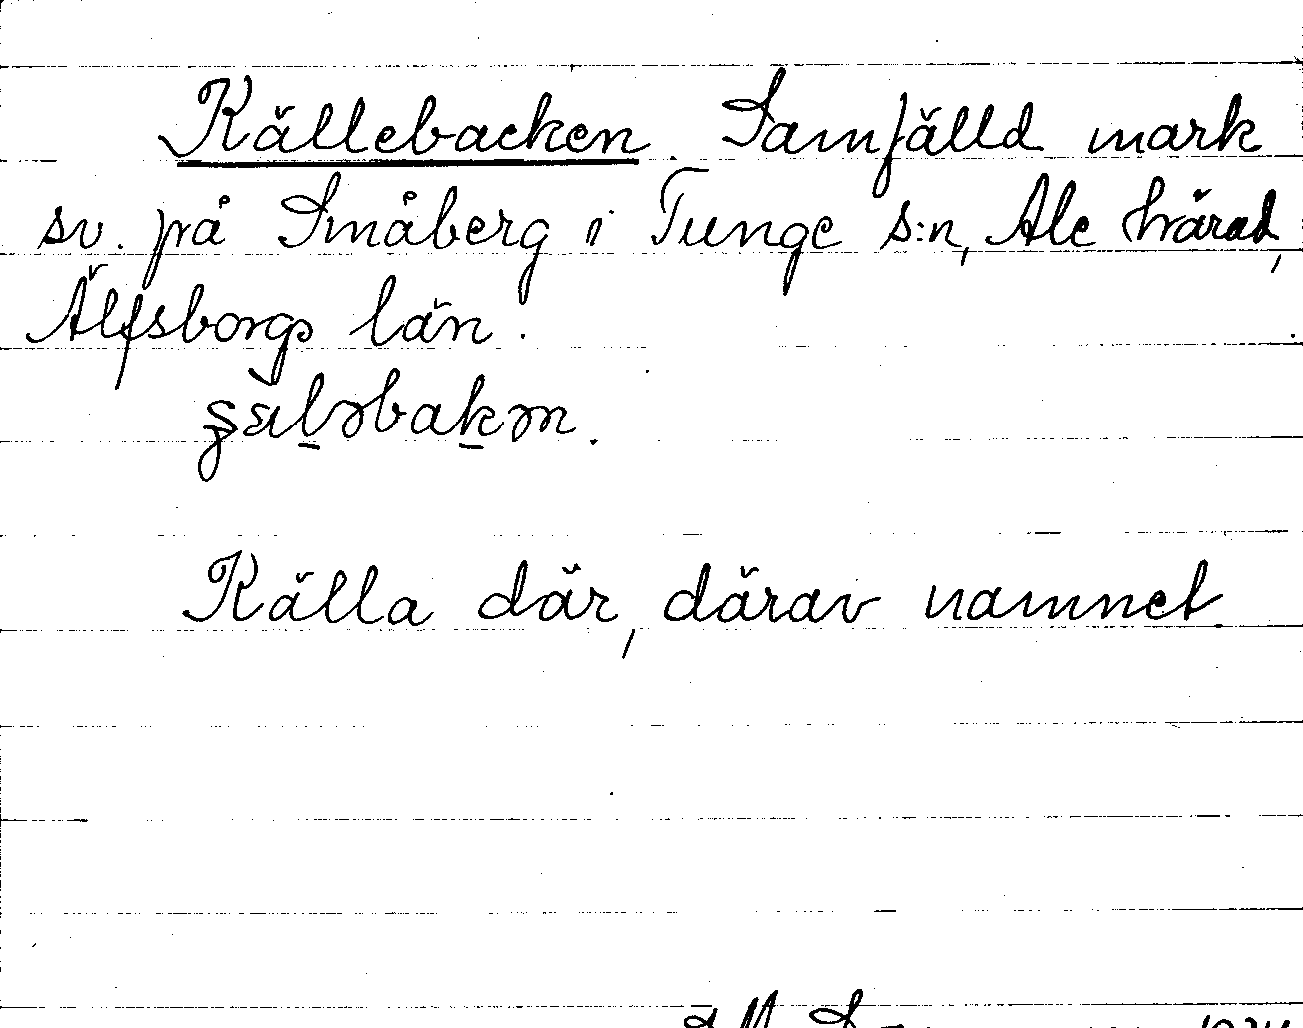 Källebacken. Samfälld mark
sv. på Småberg i Tunge s:n, Ale härad,
Älfsborgs län.
Källa där, därav namnet.